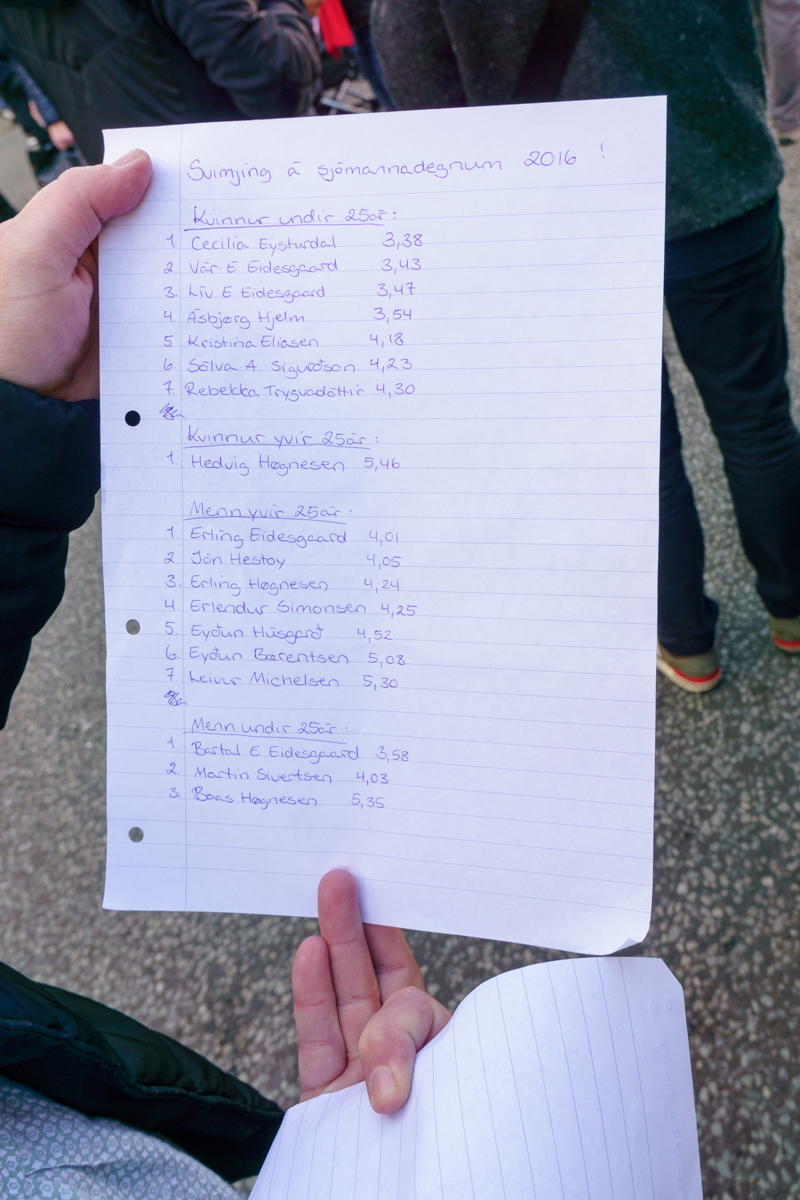 Svimjing á sjómannadegnum 2016 !
Kvinnur undir 25ár:
1. Cecilia Eysturdal 3,38
2. Vár E Eidesgaard 3,43
3. Liv. E Eidesgaard 3,47
4. Ásbjørg Hjelm 3,54
5. Kristina Eliasen 4,18
6. Sólva A. Sigurðson 4,23
7. Rebekka Trygvadóttir 4,30
Kvinnur yvir 25ár:
1. Hedvig Høgnesen 5,46
Menn yvir 25ár:
1. Erling Eidesgaard 4,01
2. Jón Hestoy 4,05
3. Erling Høgnesen 4,24
4. Erlendur Simonsen 4,25
5. Eyðun Húsgarð 4,52
6. Eyðun Bærentsen 5,08
7. Leivur Michelsen 5,30
Menn undir 25ár:
1. Bartal E Eidesgaard 3,58
2. Martin Sivertsen 4,03
3. Boas Høgnesen 5,35